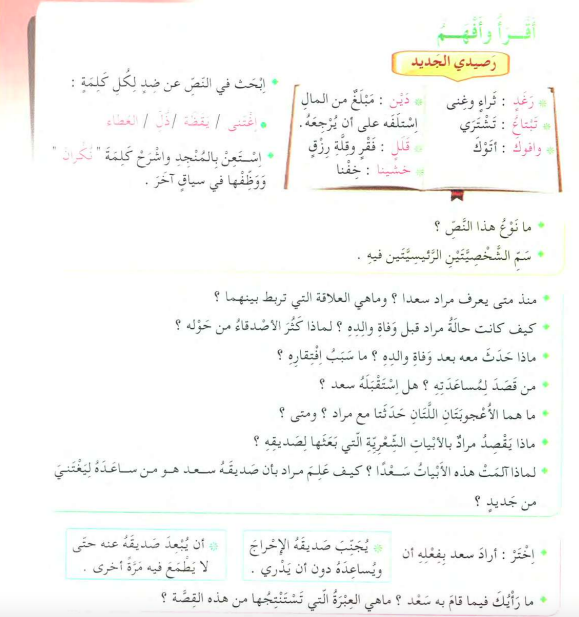 أَقْـرَأُ وأَفْهَـمُ
رَصيدي الجَديد
رَغَدٍ : ثَراءٍ وغِنى
تَبْتاعُ : تَشْتَري
وافوكَ : أتَوْكَ
دَيْن : مَبْلَغٌ من المالِ
اِسْتَلَفَه على أن يُرْجِعَهُ .
قُلَلٍ : فَقْرٍ وقِلَّةِ رِزْقٍ
خشينا : خِفْنا
اِبْحَث في النَصّ عن ضِدٍ لِكُلِ كَلِمَةٍ :
اِغْتَنى / يَقَظَة / ذُلّ / العَطاء
اِسْـتَعِنْ بِالمُنْجِدِ واشْرَحْ كَلِمَةَ " نُكْرانَ "
وَوَظِّفْها في سياقٍ آخَرَ .
ما نَوْعُ هذا النَّصّ ؟
سَمّ الشَّخْصِيَّتَيْنِ الرَّئيسِيَّتَين فيهِ .
منذ متى يعرف مراد سعدا ؟ وماهي العلاقة التي تربط بينهما ؟
كيف كانت حالَةُ مراد قبل وَفاةِ والِدِهِ ؟ لماذا كَثُرَ الأَصْدقاءُ من حَوْله ؟
ماذا حَدَثَ معه بعد وَفاةِ والدِهِ ؟ ما سَبَبُ اِفْتِقارِهِ ؟
من قَصَدَ لِمُساعَدَتِهِ ؟ هل اِسْتَقْبَلَهُ سعد ؟
ما هما الأُعْجوبَتَانِ اللَّتَانِ حَدَثَتا مع مراد ؟ ومتى ؟
ماذا يَقْصِدُ مرادٌ بالأَبْياتِ الشِّعْرِيّةِ الّتي بَعَثَها لِصَديقِهِ ؟
لماذا آلمَتْ هذه الأَبْياتُ سَـعْدًا ؟ كيـف عَلِمَ مـراد بأن صَديقَهُ سـعد هـو مـن سـاعَدَهُ لِيَغْتَنـيَ
من جَديدٍ ؟
اِخْتَرْ : أرادَ سعد بِفِعْلِهِ أن
يُجَنِّبَ صَديقَهُ الإحْراجَ
ويُساعِدَهُ دون أن يَدْري .
أن يُبْعِدَ صَديقَهُ عنه حتّى
لا يَطْمَعَ فيه مَرَّةً أخرى .
ما رَأْيُكَ فيما قامَ به سَعْد ؟ ماهي العِبْرَةُ الّتي تَسْتَنْتِجُها من هذه القِصَّة ؟